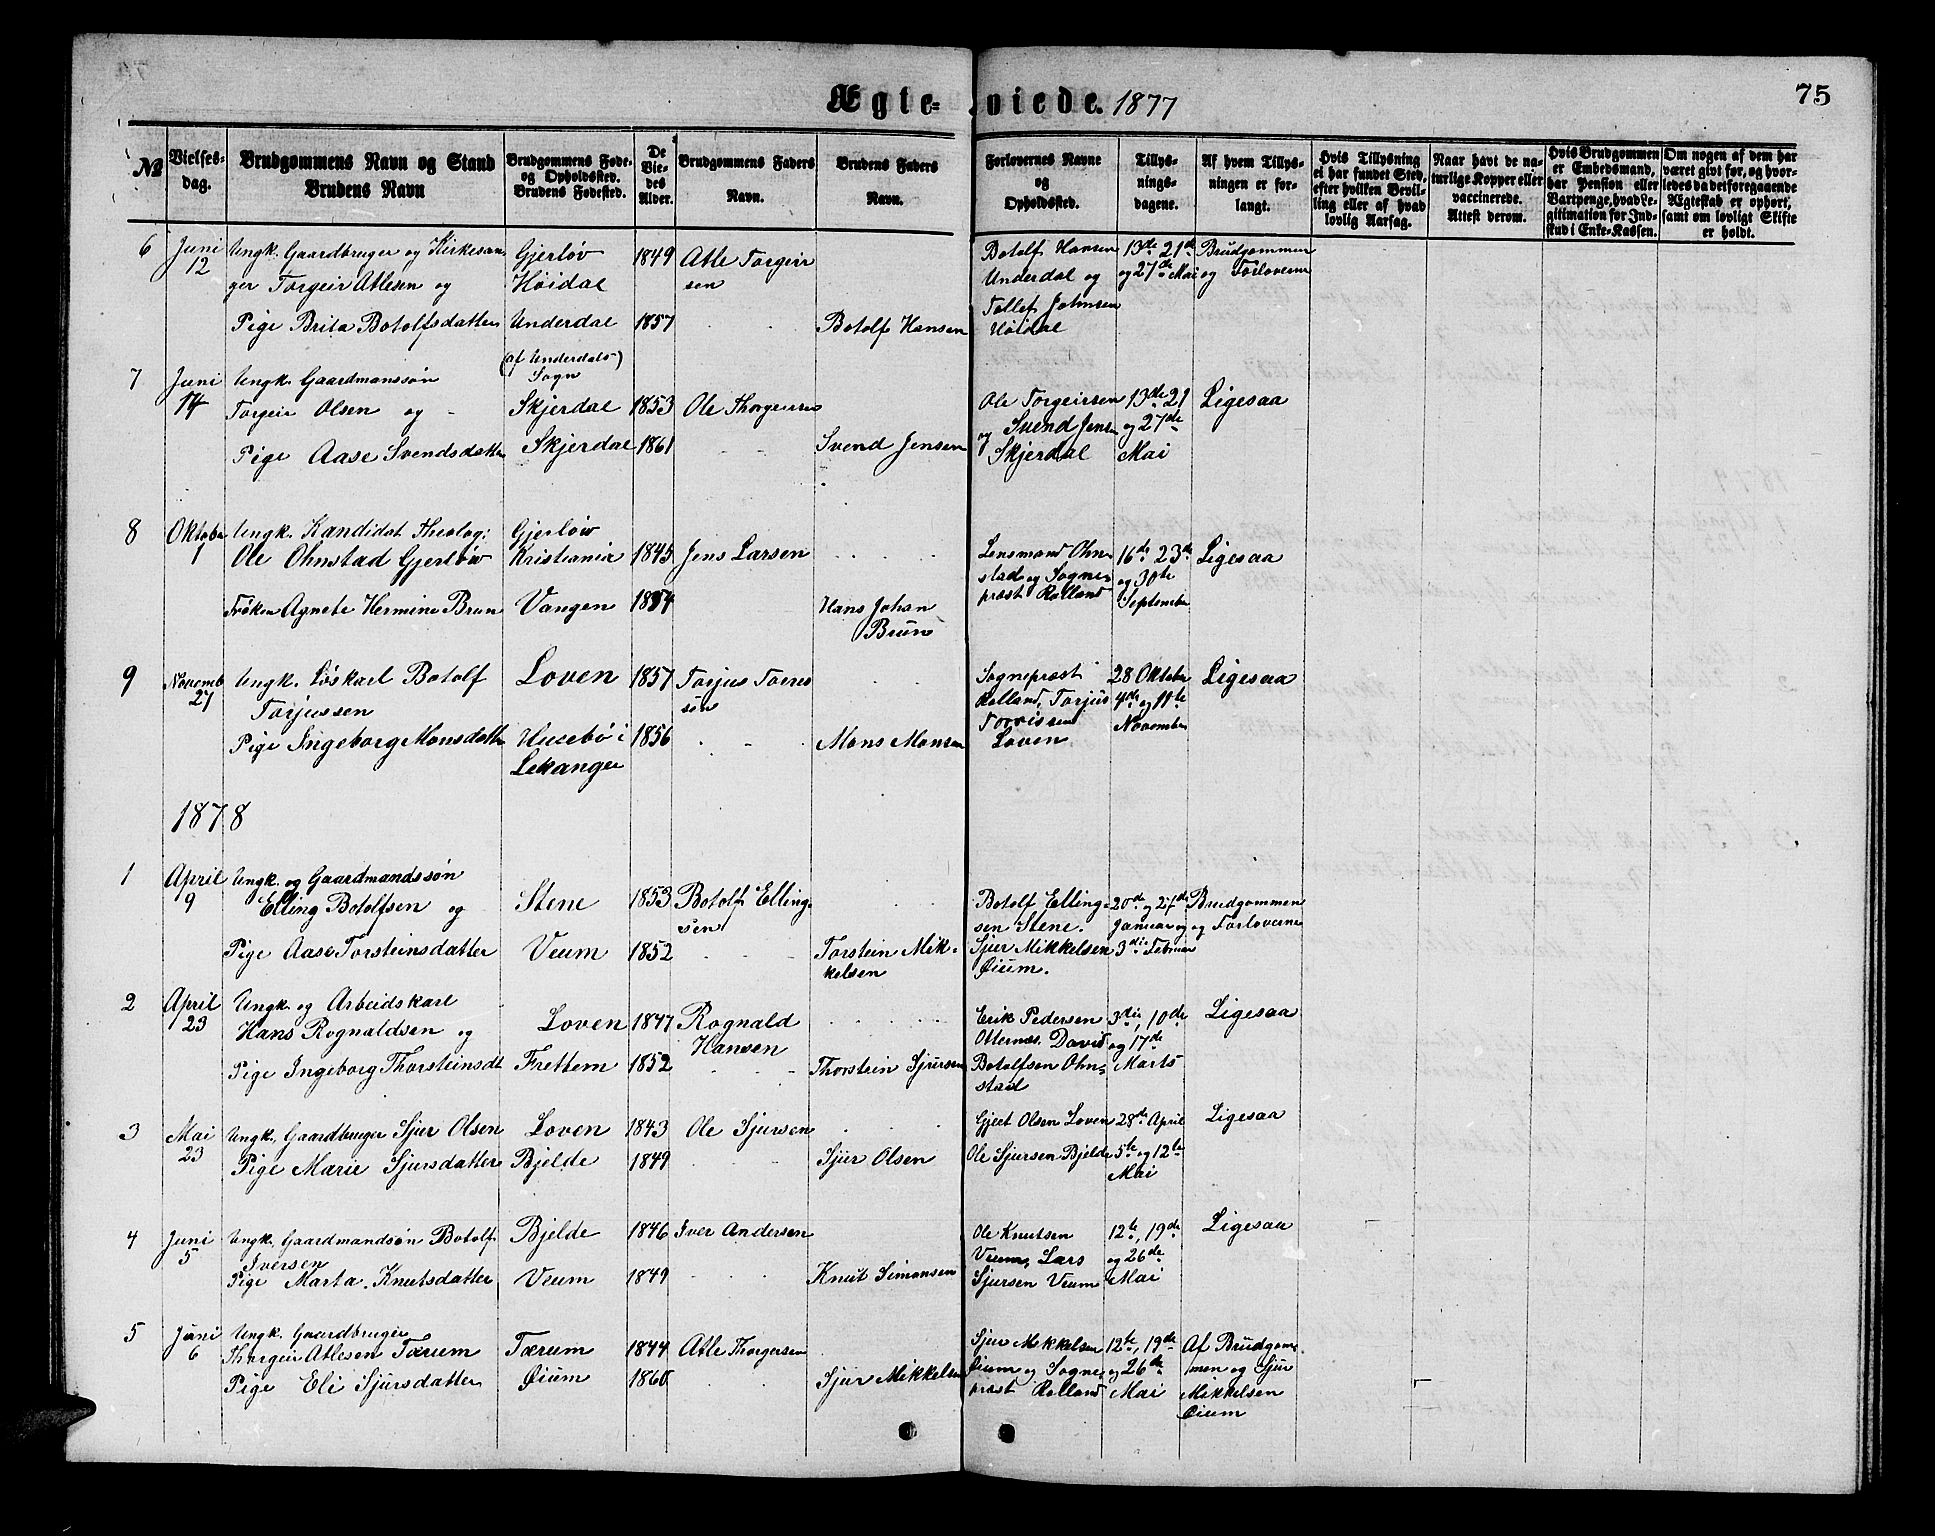 Ægte-viede. 1877
75
No
Vielses-dag.
Brudgommens Navn og Stand
Brudens Navn
Brudgommens Føde- og Opholdssted.
Brudens Fødested.
De Viedes Alder.
Brudgommens Faders Navn.
Brudens Faders Navn.
Forlovernes Navne og Opholdssted.
Tillysningsdagene.
Af hvem Tillysningen er forlangt.
Hvis Tillysning ei har fundet Sted, efter hvilken Bevilling eller af hvad lovlig Aarsag.
Naar havt de naturlige Kopper eller vaccinerede. Attest derom.
Hvis Brudgommen er Embedsmand, har Pension eller Vartpenge, hvad Legitimation for Indskud i Enke-Kassen.
Om nogen af dem har været gift før, og hvorledes da det foregaaende Ægteskab er ophørt, samt om lovligt Skifte er holdt.
6 Juni 12 Ungk. Gaardbruger og Kirkesanger Torgeir Atlesen og Gjerløv Høidal 1849 Atle Torgeirsen
Pige Brita Botolfsdatter Underdal 1857 Botolf Hansen
Botolf Hansen Underdal og Tollef Johnsen Høidal 13de 21de og 27de Mai Brudgommen og Forloverne
(af Underdals Sogn)
7 Juni 14 Ungk. Gaardmanssøn Torgeir Olsen og Skjerdal 1853 Ole Thorgeirsen
Pige Aase Svendsdatter Skjerdal 1861 Svend Jensen
Ole Torgeirsen og Svend Jensen Skjerdal 13de 21 og 27de Mai Ligesaa
8 Oktober 1 Ungk. Kandidat Theolog: Ole Ohnstad Gjerløw Gjerløw Kristiania 1845 Jens Larsen
Frøken Agnete Hermine Brun Vangen 1854 Hans Johan Brun
Lensmand Ohnstad og Sogneprest Rolland 16de 23de og 30te September Ligesaa
9 Novemb 27 Ungk. Løskarl Botolf Torjussen Loven 1857 Torjus Torressøn
Pige Ingeborg Monsdatter Husebø i Lekanger 1856 Mons Monsen
Sogneprest Rolland, Torjus Torrissen Loven 28 Oktober 4de og 11te November Ligesaa
1878
1 April 9 Ungk. og Gaardmandssøn Elling Botolfsen og Stene 1853 Botolf Ellingsen
Pige Aase Torsteinsdatter Veum 1852 Torstein Mikkelsen
Botolf Ellingsen Stene. Sjur Mikkelsen Øium. 20de og 27de Januar og 3die Februar Brudgommen og Forloverne
2 April 23 Ungk. og Arbeidskarl Hans Rognaldsen og Loven 1847 Rognald Hansen
Pige Ingeborg Thorsteinsdt Frettem 1852 Thorstein Sjursen
Erik Pedersen Otternes. David Botolfsen Ohnstad 3die, 10de og 17de Marts Ligesaa
3 Mai 23 Ungk., Gaardbruger Sjur Olsen Loven 1843 Ole Sjursen
Pige Marie Sjursdatter Bjelde 1849 Sjur Olsen
Gjert Olsen Loven Ole Sjursen Bjelde 28de April 5te og 12te Mai Ligesaa
4 Juni 5 Ungk. Gaardmandsøn Botolf Iversen Bjelde 1846 Iver Andersen
Pige Marta Knutsdatter Veum 1849 Knut Simonsen
Ole Knutsen Veum, Lars Sjursen Veum 12te, 19de og 26de Mai Ligesaa
5 Juni 6 Ungk. Gaardbruger Thorgeir Atlesen Tærum Tærum 1844 Atle Thorgersen
Pige Eli Sjursdatter Øium 1860 Sjur Mikkelsen
Sjur Mikkelsen Øium og Sogneprest Rolland 12te, 19de og 26de Mai Af Brudgommen og Sjur Mikkelsen Øium